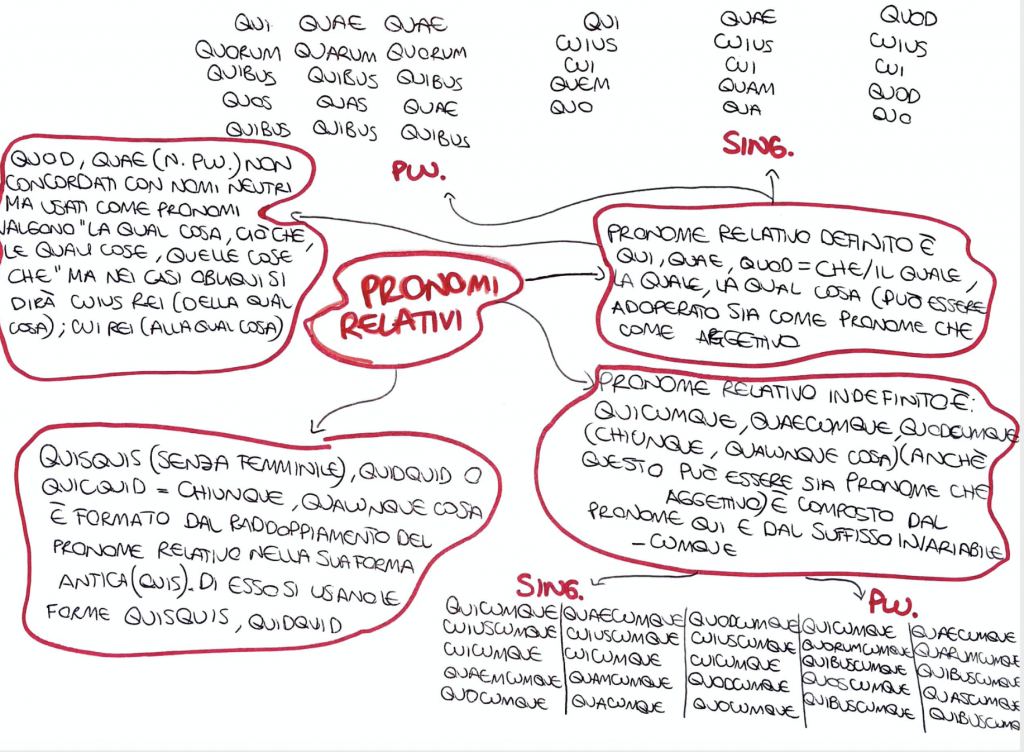 QUI QUAE QUAE
QUORUM QUARUM QUORUM
QUIBUS QUIBUS QUIBUS
QUOS QUAS QUAE
QUIBUS QUIBUS QUIBUS
PLU.
QUI QUAE QUOD
CUIUS CUIUS CUIUS
CUI CUI CUI
QUEM QUAM QUOD
QUO QUA QUO
SING.
QUOD, QUAE (N. PLU.) NON
CONCORDATI CON NOMI NEUTRI
MA USATI COME PRONOMI
VALGONO "LA QUAL COSA, CIÒ CHE,
LE QUALI COSE, QUELLE COSE
CHE" MA NEI CASI OBLIQUI SI
DIRÀ CUIUS REI (DELLA QUAL
COSA); CUI REI (ALLA QUAL COSA)
PRONOMI
RELATIVI
PRONOME RELATIVO DEFINITO È
QUI, QUAE, QUOD = CHE/IL QUALE,
LA QUALE, LA QUAL COSA (PUÒ ESSERE
ADOPERATO SIA COME PRONOME CHE
COME AGGETIVO
PRONOME RELATIVO INDEFINITO È:
QUICUMQUE, QUAECUMQUE, QUODCUMQUE
(CHIUNQUE, QUALUNQUE COSA) (ANCHE
QUESTO PUÒ ESSERE SIA PRONOME CHE
AGGETIVO) È COMPOSTO DAL
PRONOME QUI E DAL SUFFISSO INVARIABILE
-CUMQUE
QUISQUIS (SENZA FEMMINILE), QUIDQUID O
QUICQUID = CHIUNQUE, QUALUNQUE COSA
È FORMATO DAL RADDOPPIAMENTO DEL
PRONOME RELATIVO NELLA SUA FORMA
ANTICA (QUIS). DI ESSO SI USANO LE
FORME QUISQUIS, QUIDQUID
SING.
PLU.
QUICUMQUE QUAECUMQUE QUODCUMQUE QUICUMQUE QUAECUMQUE
CUIUSCUMQUE CUIUSCUMQUE CUIUSCUMQUE QUORUMCUMQUE QUARUMCUMQUE
CUICUMQUE CUICUMQUE CUICUMQUE QUIBUSCUMQUE QUIBUSCUMQUE
QUAEMCUMQUE QUAMCUMQUE QUODCUMQUE QUOSCUMQUE QUASCUMQUE
QUOCUMQUE QUACUMQUE QUOCUMQUE QUIBUSCUMQUE QUIBUSCUMQ